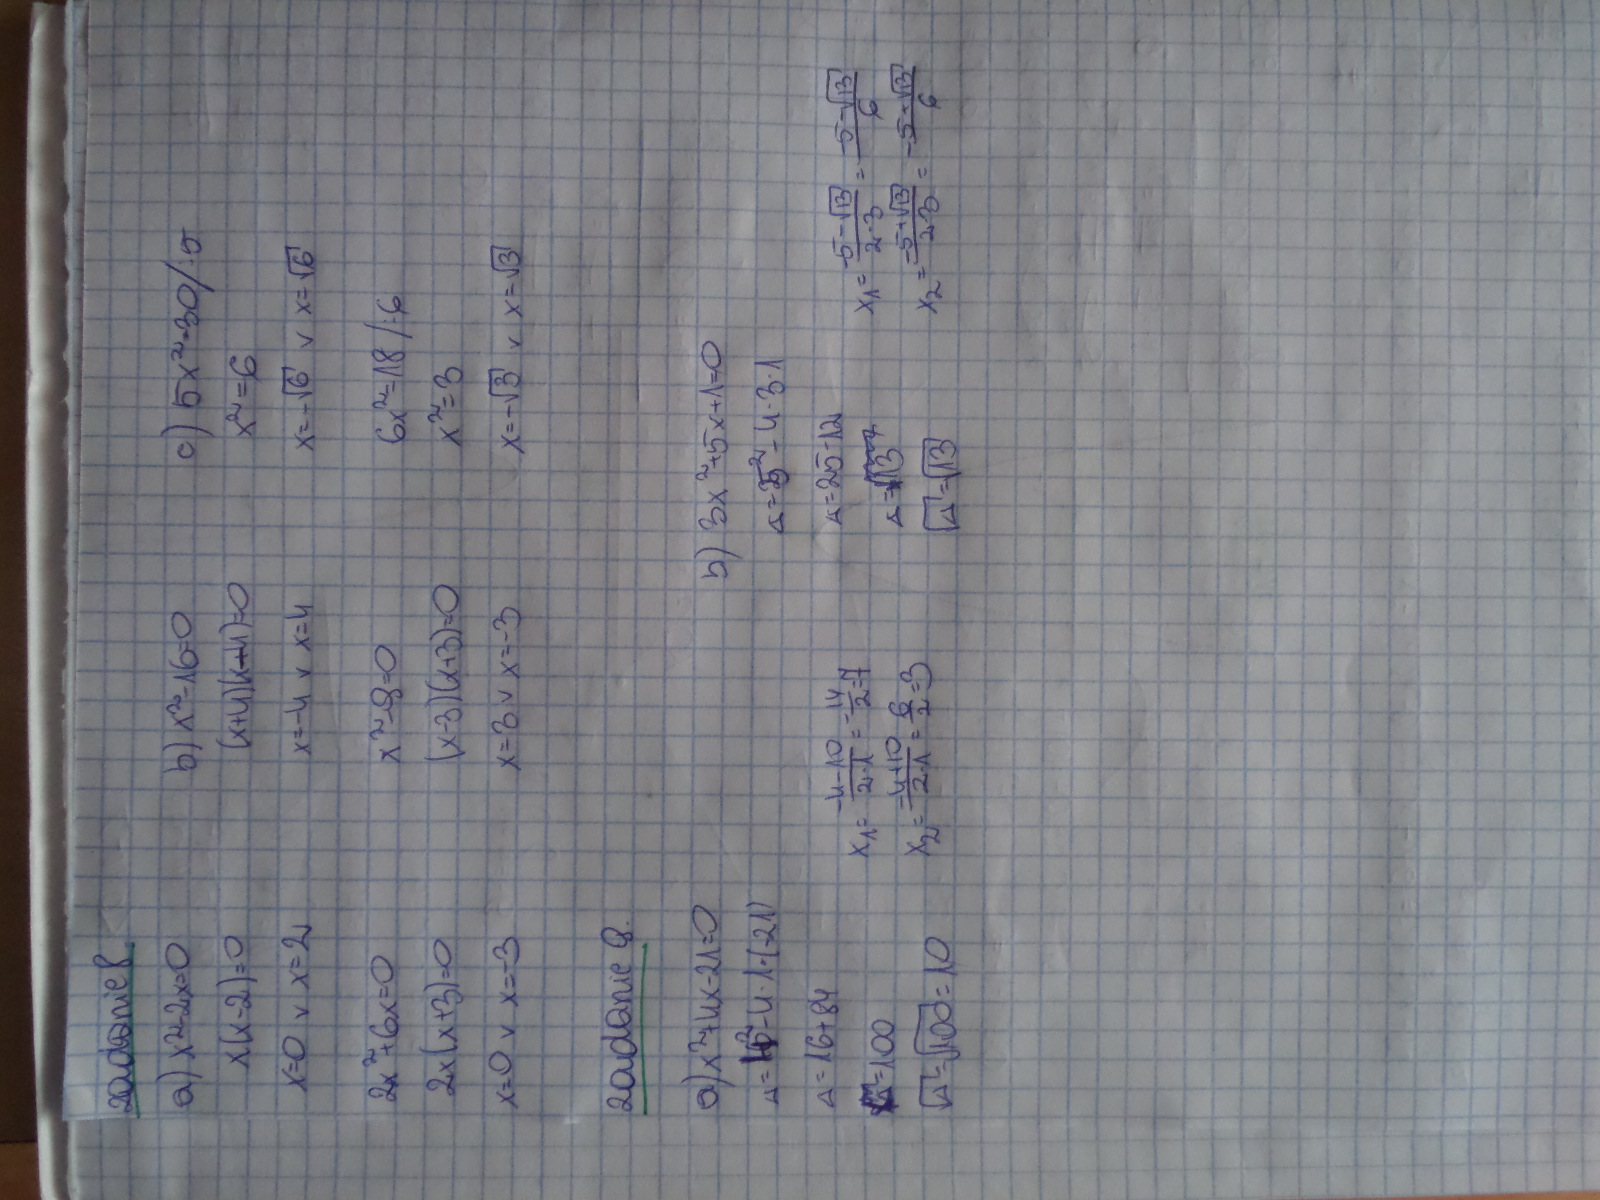 zadanie 8.
a) x²-2x=0
x(x-2)=0
x=0 v x=2
2x²+6x=0
2x(x+3)=0
x=0 v x=-3
b) x²-16=0
(x+4)(x-4)=0
x=-4 v x=4
x²-9=0
(x-3)(x+3)=0
x=3 v x=-3
c) 5x²=30/:5
x²=6
x=-√6 v x=√6
6x²=18/:6
x²=3
x=-√3 v x=√3
zadanie 9.
a) x²+4x-21=0
Δ=4²-4·1·(-21)
Δ=16+84
Δ=100
√Δ=√100=10
x₁=(-4-10)/(2·1)=-14/2=7
x₂=(-4+10)/(2·1)=6/2=3
b) 3x²+5x+1=0
Δ=5²-4·3·1
Δ=25-12
Δ=13
√Δ=√13
x₁=(-5-√13)/(2·3)=(-5-√13)/6
x₂=(-5+√13)/(2·3)=(-5+√13)/6